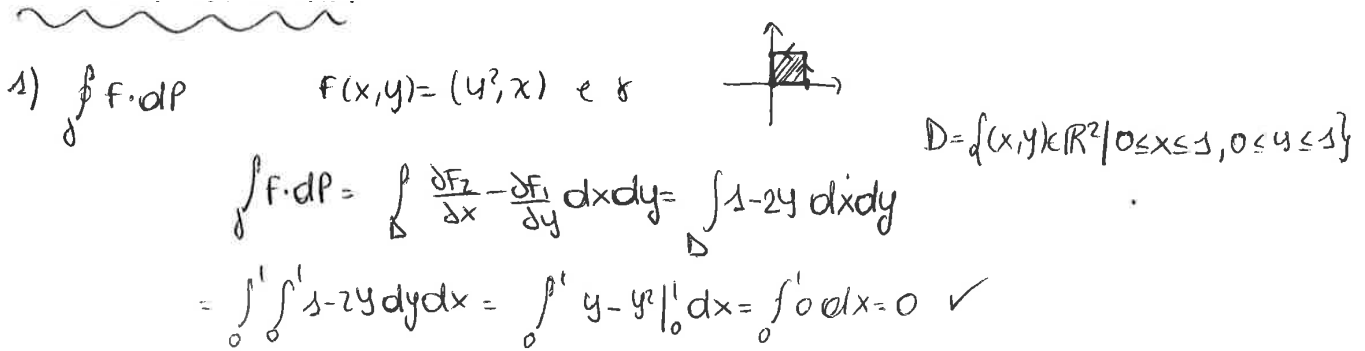 1) ∮_γ F·dP F(x,y)=(y²,x) e γ
D={(x,y)∈ℝ²|0≤x≤1,0≤y≤1}
∫_γ F·dP = ∫_D ∂F₂/∂x - ∂F₁/∂y dxdy = ∫_D 1-2y dxdy
= ∫₀¹ ∫₀¹ 1-2y dydx = ∫₀¹ y-y²|₀¹ dx = ∫₀¹ 0 dx = 0 ✓